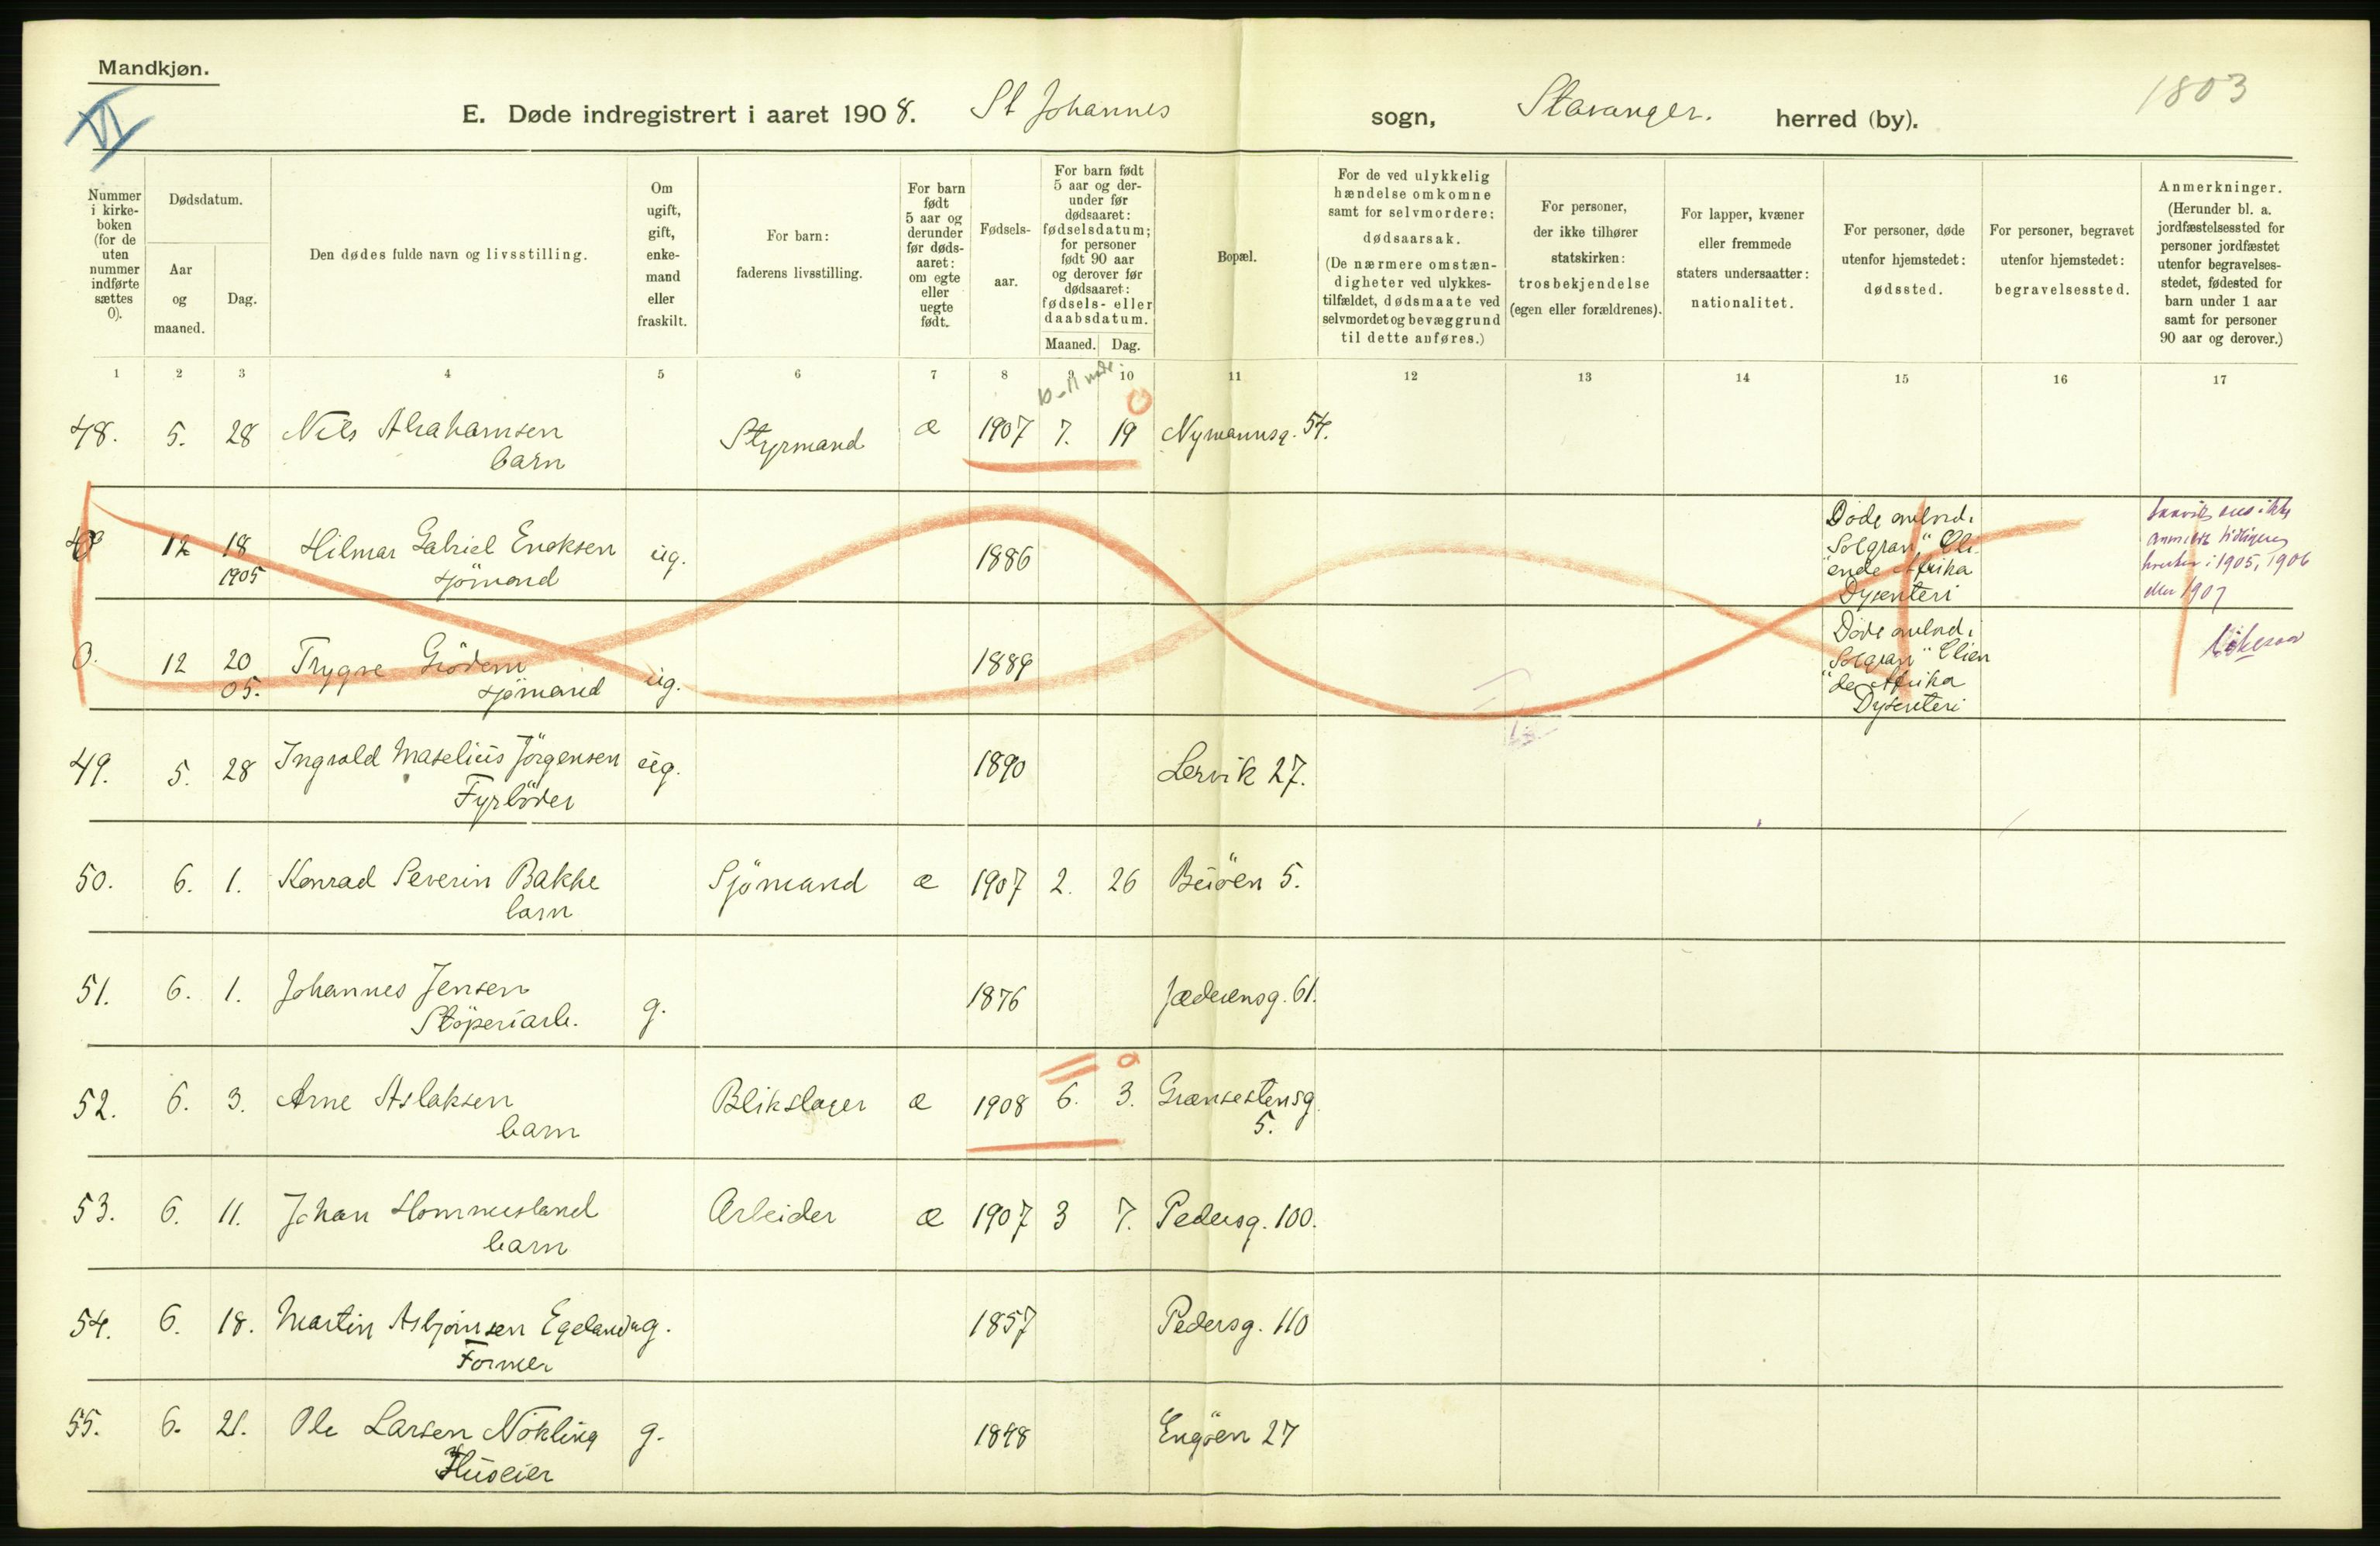 Mandkjøn.
VI
E. Døde indregistrert i aaret 1908. St Johannes sogn, Stavanger. herred (by).
1803
Nummer i kirke-boken (for de uten nummer indførte sættes 0).
Dødsdatum.
Aar og maaned.
Dag.
Den dødes fulde navn og livsstilling.
Om ugift, gift, enke-mand eller fraskilt.
For barn: faderens livsstilling.
For barn født 5 aar og derunder før døds-aaret: om egte eller uegte født.
Fødsels-aar.
For barn født 5 aar og der-under før dødsaaret: fødselsdatum; for personer født 90 aar og derover før dødsaaret: fødsels- eller daabsdatum.
Maaned. Dag.
Bopæl.
For de ved ulykkelig hændelse omkomne samt for selvmordere: dødsaarsak. (De nærmere omstæn-digheter ved ulykkes-tilfældet, dødsmaate ved selvmordet og bevæggrund til dette anføres.)
For personer, der ikke tilhører statskirken: trosbekjendelse (egen eller forældrenes).
For lapper, kvæner eller fremmede staters undersaatter: nationalitet.
For personer, døde utenfor hjemstedet: dødssted.
For personer, begravet utenfor hjemstedet: begravelsessted.
Anmerkninger. (Herunder bl. a. jordfæstelsessted for personer jordfæstet utenfor begravelses-stedet, fødested for barn under 1 aar samt for personer 90 aar og derover.)
1 2 3 4 5 6 7 8 9 10 11 12 13 14 15 16 17
10-11 mdr
48. 5. 28 Nils Abrahamsen Styrmand æ 1907 7. 19 Nymannsg. 54.
barn
0 12 18 Hilmar Gabriel Enoksen ug. 1886 Døde ombord i
1905 sjömand "Solgran,"
Afrika
Dysenteri
1905, 1906
1907
0. 12 20 Trygve Grödem ug. 1889 Døde ombord i
05. sjömand "Solgran"
Afrika
Dysenteri
49. 5. 28 Ingvald Maselius Jörgensen ug. 1890 Lervik 27.
Fyrböder
50. 6. 1. Konrad Severin Bakke Sjömand æ 1907 2. 26 Buöen 5.
barn
51. 6. 1. Johannes Jensen g. 1876 Jæderensg. 61.
Stöperiarb.
52. 6. 3. Arne Aslaksen Blikslager æ 1908 6. 3. Grænsestensg.
barn 5.
53. 6. 11. Johan Hommesland Arbeider æ 1907 3 7. Pedersg. 100.
barn
54. 6. 18. Martin Asbjörnsen Egeland ug. 1857 Pedersg. 110
Former
55. 6. 21. Ole Larsen Nökling g. 1848 Engöen 27
Huseier